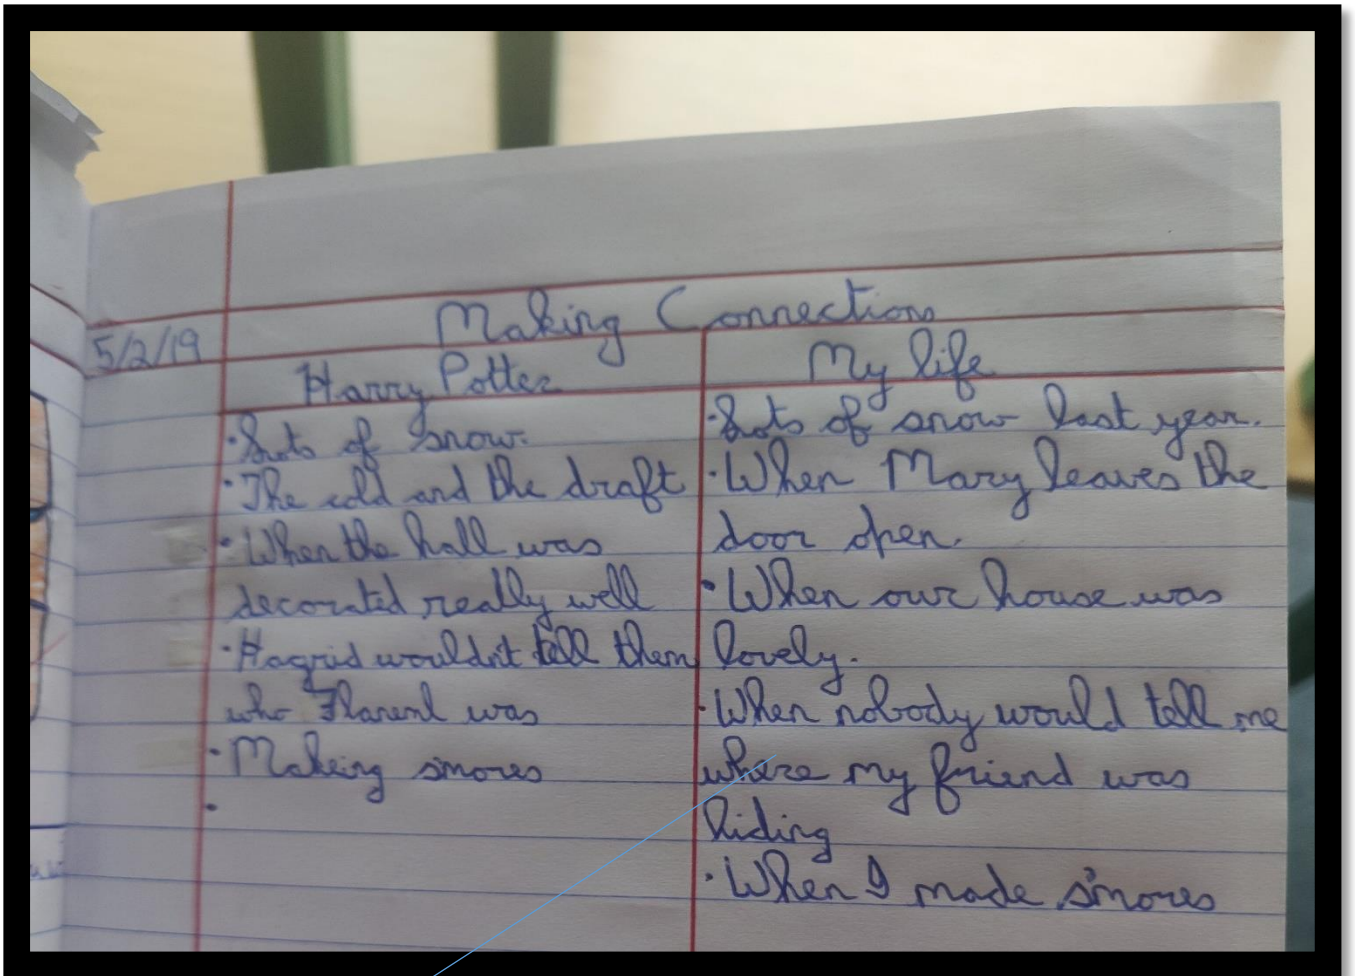 Making Connections
5/2/19
Harry Potter
My life
·Lots of snow.
·The cold and the draft
·When the hall was
decorated really well
·Hagrid wouldn't tell them
who Flamenl was
·Making smores
·
·Lots of snow last year.
·When Mary leaves the
door open.
·When our house was
lovely.
·When nobody would tell me
where my friend was
hiding
·When I made s'mores